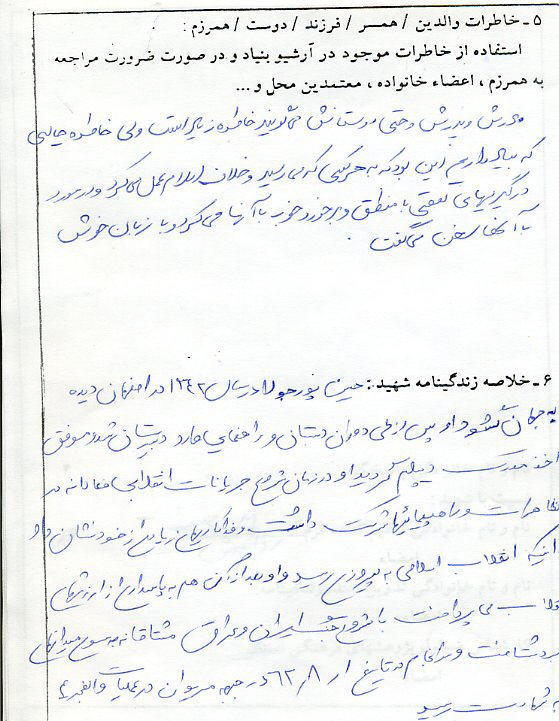 ۵ - خاطرات والدین / همسر / فرزند / دوست / همرزم :
استفاده از خاطرات موجود در آرشیو بنیاد و در صورت ضرورت مراجعه
به همرزم ، اعضاء خانواده ، معتمدین محل و ...
مادرش و پدرش و حتی دوستانش می‌گویند خاطره زیاد است ولی خاطره جالبی
که بیاد داریم این بود که به هر کسی که می رسید و خلاف اسلام عمل می‌کرد و در مورد
درگیریهای لفظی با منطق و برخورد خوب با آنها می‌کرد و با زبان خوش
با آنها سخن می‌گفت .
۶ - خلاصه زندگینامه شهید : حسین پورجولا در سال ۱۳۴۲ در اصفهان دیده
به جهان گشود او پس از طی دوران دبستان و راهنمایی وارد دبیرستان شد و موفق
اخذ مدرک دیپلم گردید او در زمان شروع جریانات انقلابی فعالانه در
تظاهرات و راهپیمائیها شرکت داشت و فداکاریهای زیادی از خود نشان داد
اینکه انقلاب اسلامی به پیروزی رسید و او بعد از آن هم به پاسداری از ارزشهای
انقلاب می پرداخت با شروع جنگ ایران و عراق مشتاقانه به سوی میدانهای
نبرد شتافت و سرانجام در تاریخ ۶۲٫۸ در جبهه مریوان در عملیات والفجر ۴
به شهادت رسید